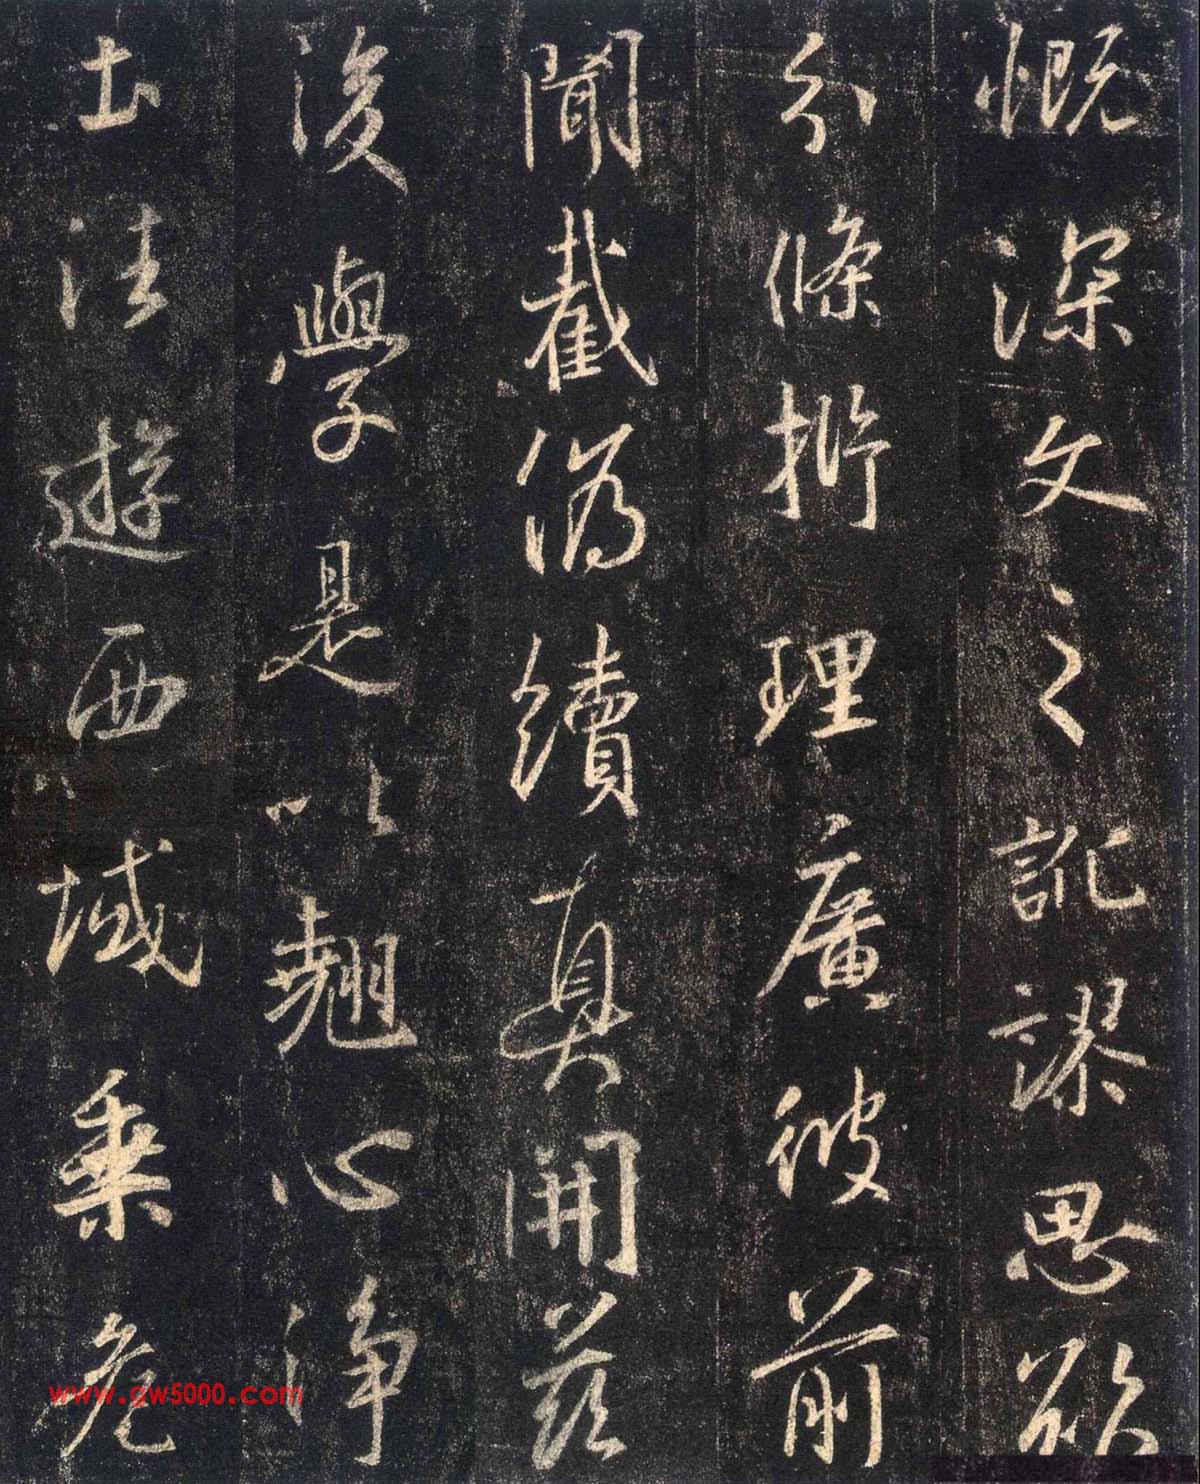 慨深文之訛謬思欲
分條析理廣彼前
聞截偽續真開茲
後學是以翹心淨
土法遊西域乘危
www.gw5000.com